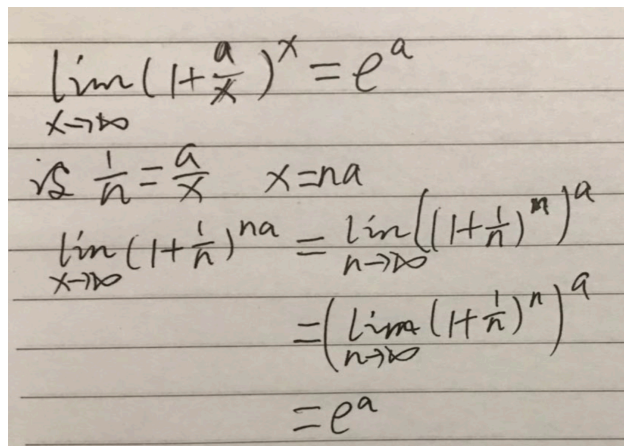 lim x→∞ (1+a/x)^x = e^a
设 1/n = a/x x=na
lim x→∞ (1+1/n)^na = lim n→∞ ((1+1/n)^n)^a
= (lim n→∞ (1+1/n)^n)^a
= e^a